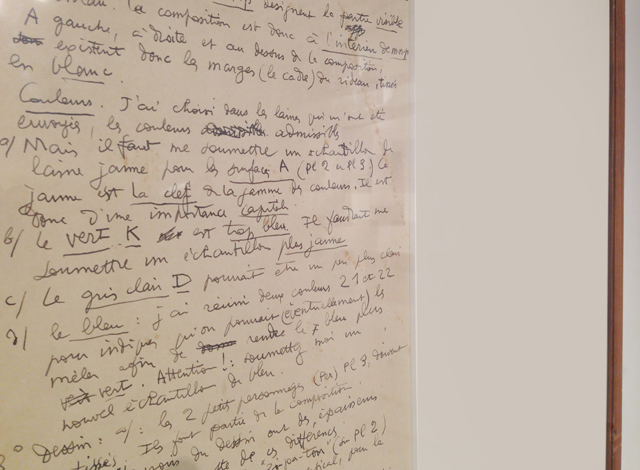 la composition est donc à l'intérieur de marges
A gauche, à droite et au dessous de la composition,
existent donc les marges (le cadre) du rideau,
en blanc.
Couleurs. J'ai choisi dans les laines qui m'ont été
envoyées, les couleurs admissibles
a/ Mais il faut me soumettre un échantillon de
laine jaune pour les surfaces A (Pl 2 et Pl 3) Ce
jaune est la clef de la gamme des couleurs. Il est
donc d'une importance capitale.
b/ Le vert K est trop bleu. Il faudrait me
soumettre un échantillon plus jaune
c/ Le gris clair D pourrait être un peu plus clair
d/ le bleu : j'ai réuni deux couleurs 21 et 22
pour indiquer qu'on pourrait (éventuellement) les
mêler afin de rendre le bleu plus
vert. Attention ! : soumettez moi un
nouvel échantillon de bleu.
3° Dessin : a/ : les 2 petits personnages Pl 3, doivent
Ils font partie de la composition.
du dessin ont des épaisseurs
de ces différences
(ou pl 2)